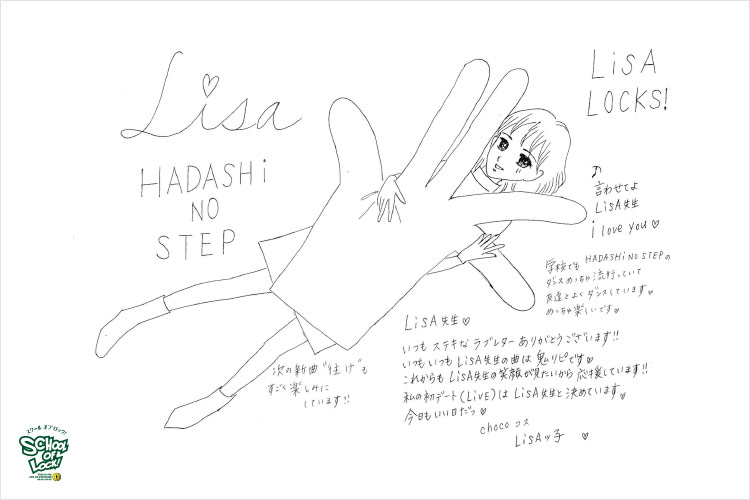 Lisa
HADASHi
NO
STEP
LiSA
LOCKS!
♪
言わせてよ
LiSA先生
i love you♡
学校でも HADASHi NO STEPの
ダンスめっちゃ流行っていて
友達とよくダンスしています♡
めっちゃ楽しいです♡
LiSA先生♡
いつも ステキな ラブレター ありがとうございます!!
いつも いつも LiSA先生の曲は 鬼リピです♡
これからも LiSA先生の笑顔が見たいから 応援しています!!
私の初デート(LiVE)は LiSA先生と決めています♡
今日もいい日だっ♡
choco コス
LiSAッ子 ♡
次の新曲"往け"も
すごく楽しみに
しています!!
スクール オブ ロック!
SCHOOL
OF
LOCK!